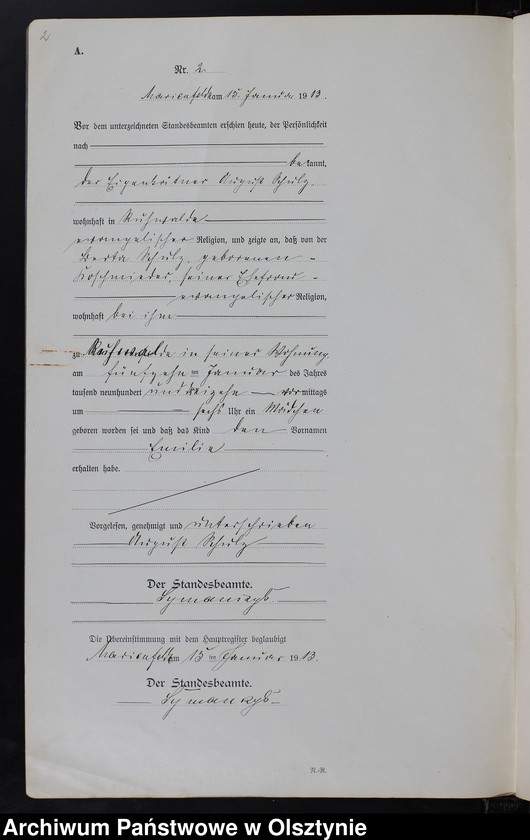 2
A.
Nr. 2
Marienfelde am 15. Januar 1913.
Vor dem unterzeichneten Standesbeamten erschien heute, der Persönlichkeit
nach
bekannt,
der Eigenkätner August Schulz
wohnhaft in Kuhwalde
evangelischer Religion, und zeigte an, daß von der
Berta Schulz, geborenen
Koschmieder, seiner Ehefrau
evangelischer Religion,
wohnhaft bei ihm
zu in seiner Wohnung
am fünfzehnten Januar des Jahres
tausend neunhundert und dreizehn vormittags
um sechs Uhr ein Mädchen
geboren worden sei und daß das Kind den Vornamen
Emilie
erhalten habe.
Vorgelesen, genehmigt und unterschrieben
August Schulz
Der Standesbeamte.
Die Übereinstimmung mit dem Hauptregister beglaubigt
Marienfelde am 15ten Januar 1913.
Der Standesbeamte.
N.-R.
Archiwum Państwowe w Olsztynie